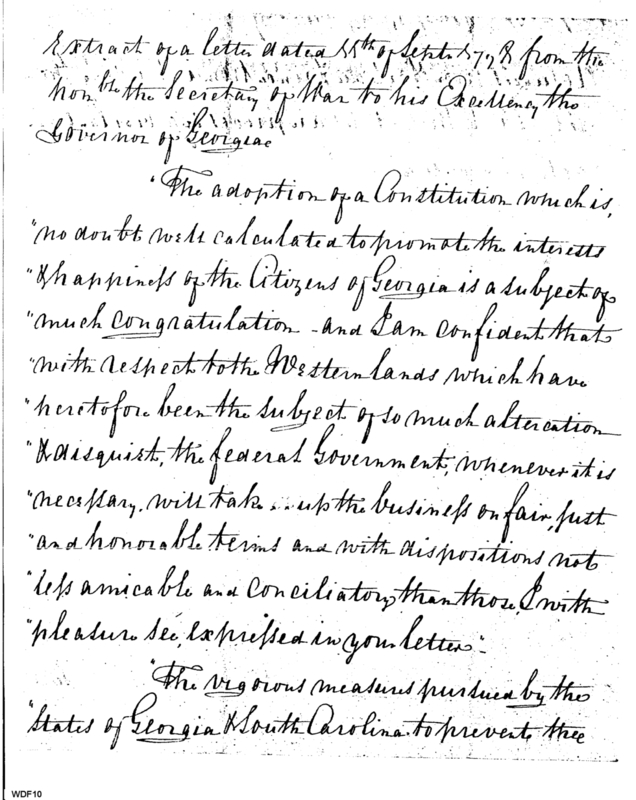 Extract of a letter dated of Sept. from the
Honble. the Secretary of War to his Excellency the
Governor of Georgia
"The adoption of a Constitution which is,
"no doubt well calculated to promote the interests
"& happiness of the Citizens of Georgia is a subject of
"much congratulation - and I am confident that
"with respect to the Western lands which have
"heretofore been the subject of so much altercation
"& disquiet, the federal Government, whenever it is
"necessary, will take up the business on fair, just
"and honorable terms and with dispositions not
"less amicable and conciliatory than those, I with
"pleasure see, expressed in your letter."
"The vigorous measures pursued by the
"States of Georgia & South Carolina to prevent the
WDF10